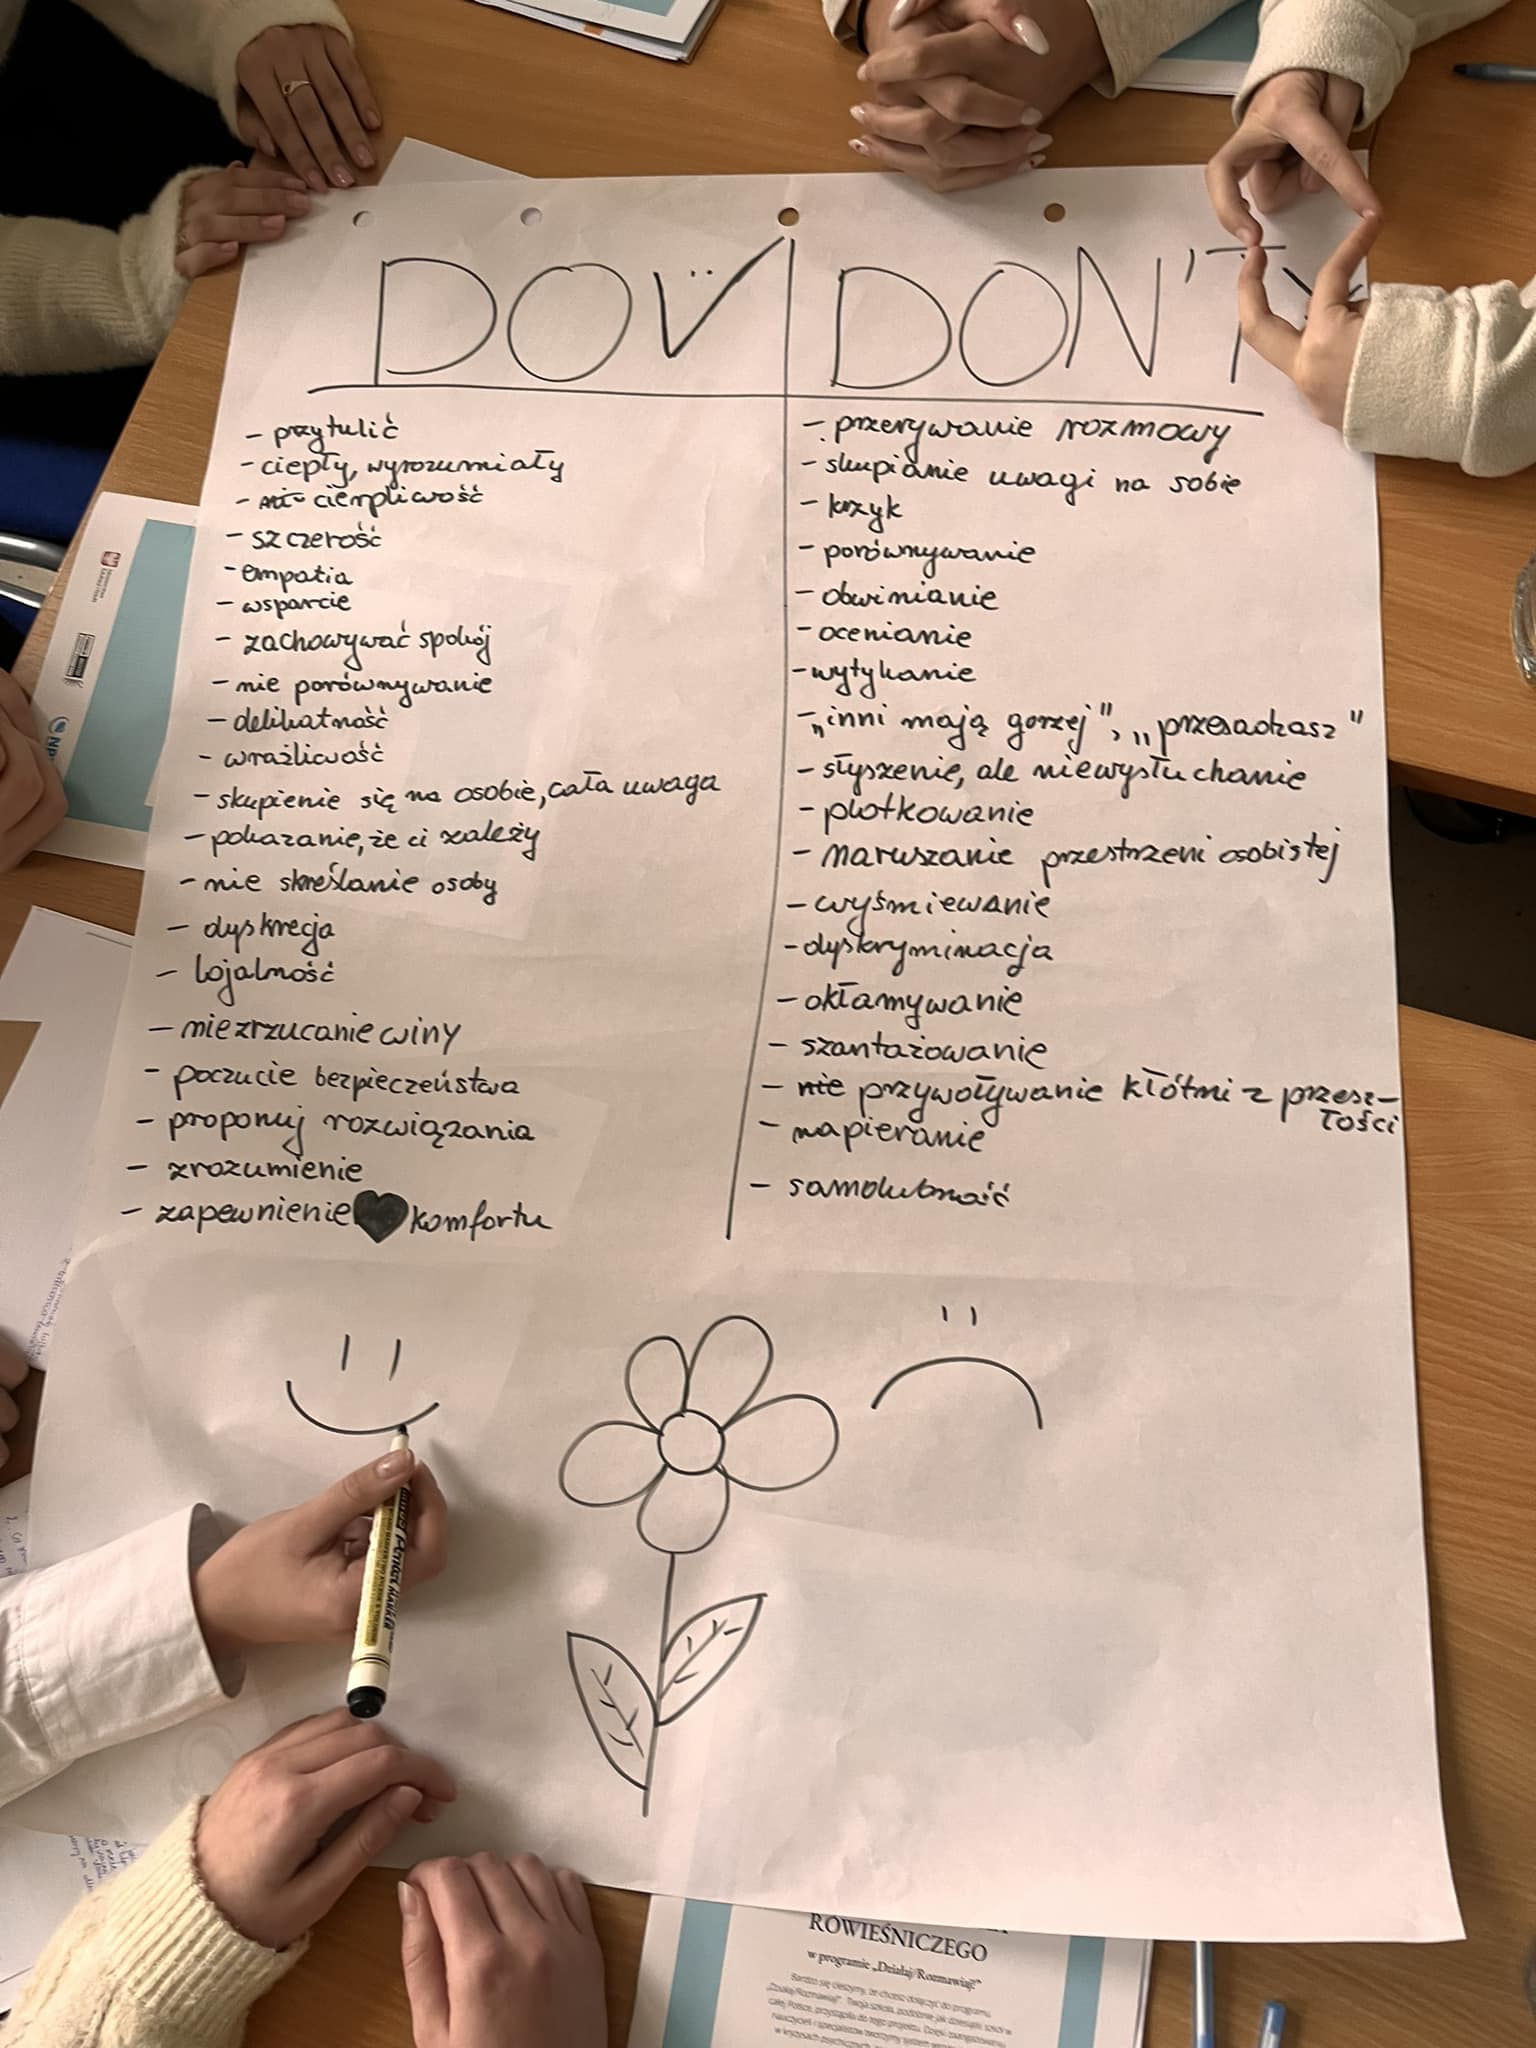 DO
- przytulić
- ciepły, wyrozumiały
- cierpliwość
- szczerość
- empatia
- wsparcie
- zachowywać spokój
- nie porównywanie
- delikatność
- wrażliwość
- skupienie się na osobie, cała uwaga
- pokazanie, że ci zależy
- nie skreślanie osoby
- dyskrecja
- lojalność
- niezrzucanie winy
- poczucie bezpieczeństwa
- proponuj rozwiązania
- zrozumienie
- zapewnienie komfortu
DON'T
- przerywanie rozmowy
- skupianie uwagi na sobie
- krzyk
- porównywanie
- obwinianie
- ocenianie
- wytykanie
- „inni mają gorzej", „przesadzasz"
- słyszenie, ale niewysłuchanie
- plotkowanie
- naruszanie przestrzeni osobistej
- wyśmiewanie
- dyskryminacja
- okłamywanie
- szantażowanie
- nie przywoływanie kłótni z przesz-
łości
- napieranie
- samolubność
ROWIEŚNICZEGO
w programie „Działaj/Rozmawiaj!"
Bardzo się cieszymy, że chcesz dołączyć do programu